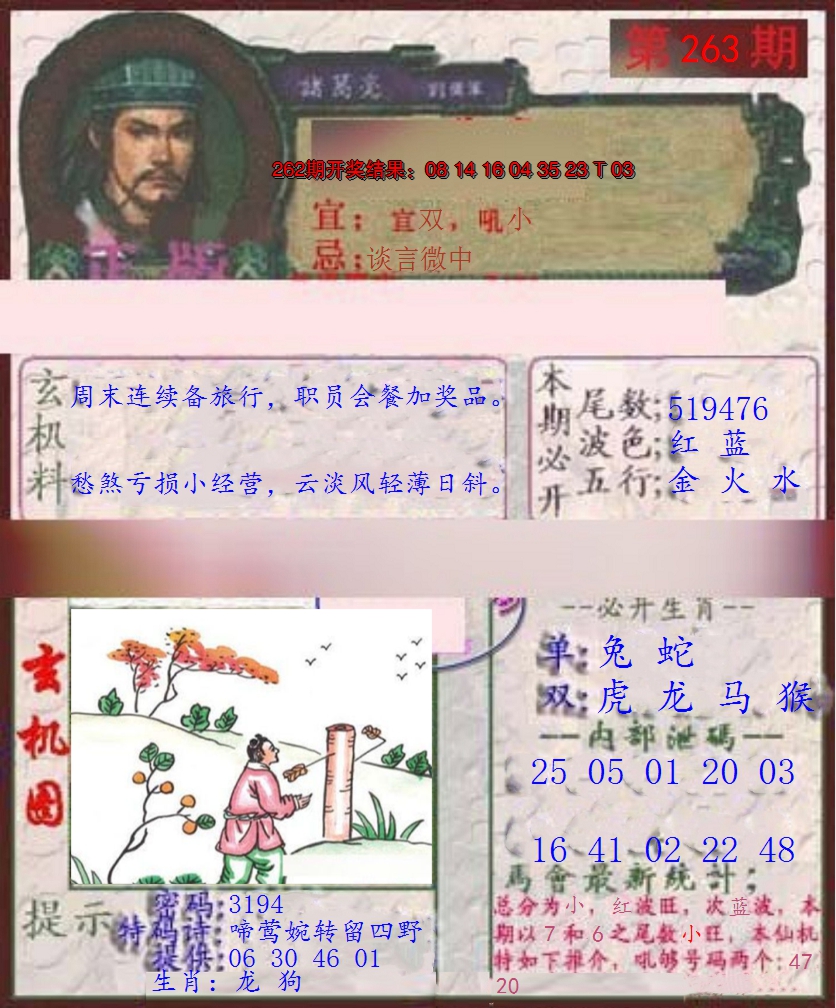 第 263 期
諸葛亮
262期开奖结果：08 14 16 04 35 23 T 03
宜：宜双，吼小
忌：谈言微中
正版
玄机料
周末连续备旅行，职员会餐加奖品。
愁煞亏损小经营，云淡风轻薄日斜。
本期必开
尾数；519476
波色；红 蓝
五行；金 火 水
玄机图
--必开生肖--
单：兔 蛇
双：虎 龙 马 猴
一内部泄碼一
25 05 01 20 03
16 41 02 22 48
馬會最新統計；
总分为小，红波旺，次蓝波，本
期以7和6之尾数小旺，本仙机
特如下推介，吼够号码两个：47
20
提示
密码：3194
特码诗：啼莺婉转留四野
提供：06 30 46 01
生肖：龙 狗